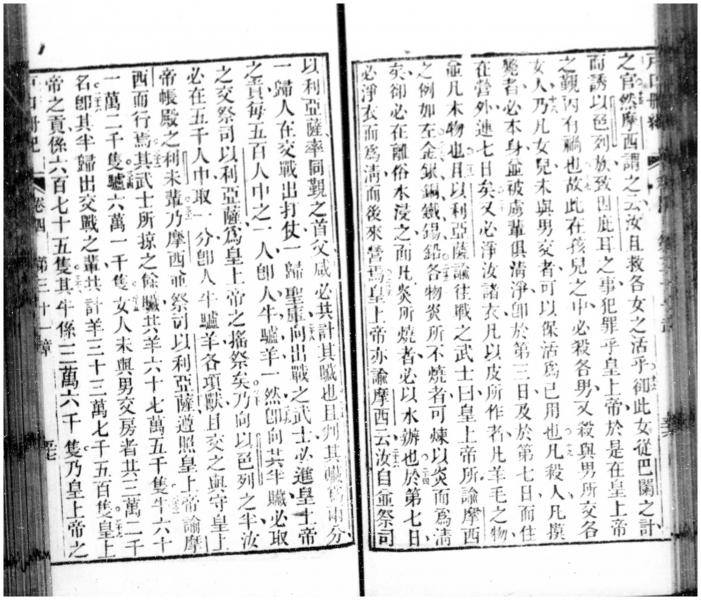 之官然摩西謂之云汝且救各女之活乎卻此女從巴闌之計
而誘以邑列族致因庇耳之事犯罪乎皇上帝於是在皇上帝
之覲內有禍也故此在孩兒之中必殺各男又殺與男所交各
女人乃凡女兒未與男交者可以保活爲己用也凡殺人凡摸
斃者必本身並被虜輩俱清淨卽於第三日及於第七日而住
在營外連七日矣又必淨汝諸衣凡以皮所作者凡羊毛之物
並凡木物也且以利亞薩諭往戰之武士曰皇上帝所諭摩西
之例如左金銀銅鐵錫鉛各物炎所不燒者可煉以炎而爲清
矣卻必在離俗水浸之而凡炎所燒者必以水辦也於第七日
必淨衣而爲清而後來營焉皇上帝亦諭摩西云汝自並祭司
以利亞薩率同覲之首父咸必共計其贓也且判其贓爲兩分
一歸人在交戰出打仗一歸聖庫向出戰之武士必進皇上帝
之貢每五百人中之一人卽人牛驢羊一然卽向其半贓必取
之交祭司以利亞薩爲皇上帝之搖祭矣乃向以邑列之半汝
必在五千人中取一分卽人牛驢羊各項獸且交之與守皇上
帝帳殿之利未輩乃摩西並祭司以利亞薩遵照皇上帝諭摩
西而行焉其武士所掠之餘贓共羊六十七萬五千隻牛六十
一萬二千隻驢六萬一千隻女人未與男交房者其三萬二千
名卽其半歸出交戰之輩共計羊三十三萬七千五百隻皇上
帝之貢係六百七十五隻其牛係三萬六千隻乃皇上帝之
卷四 第三十一章